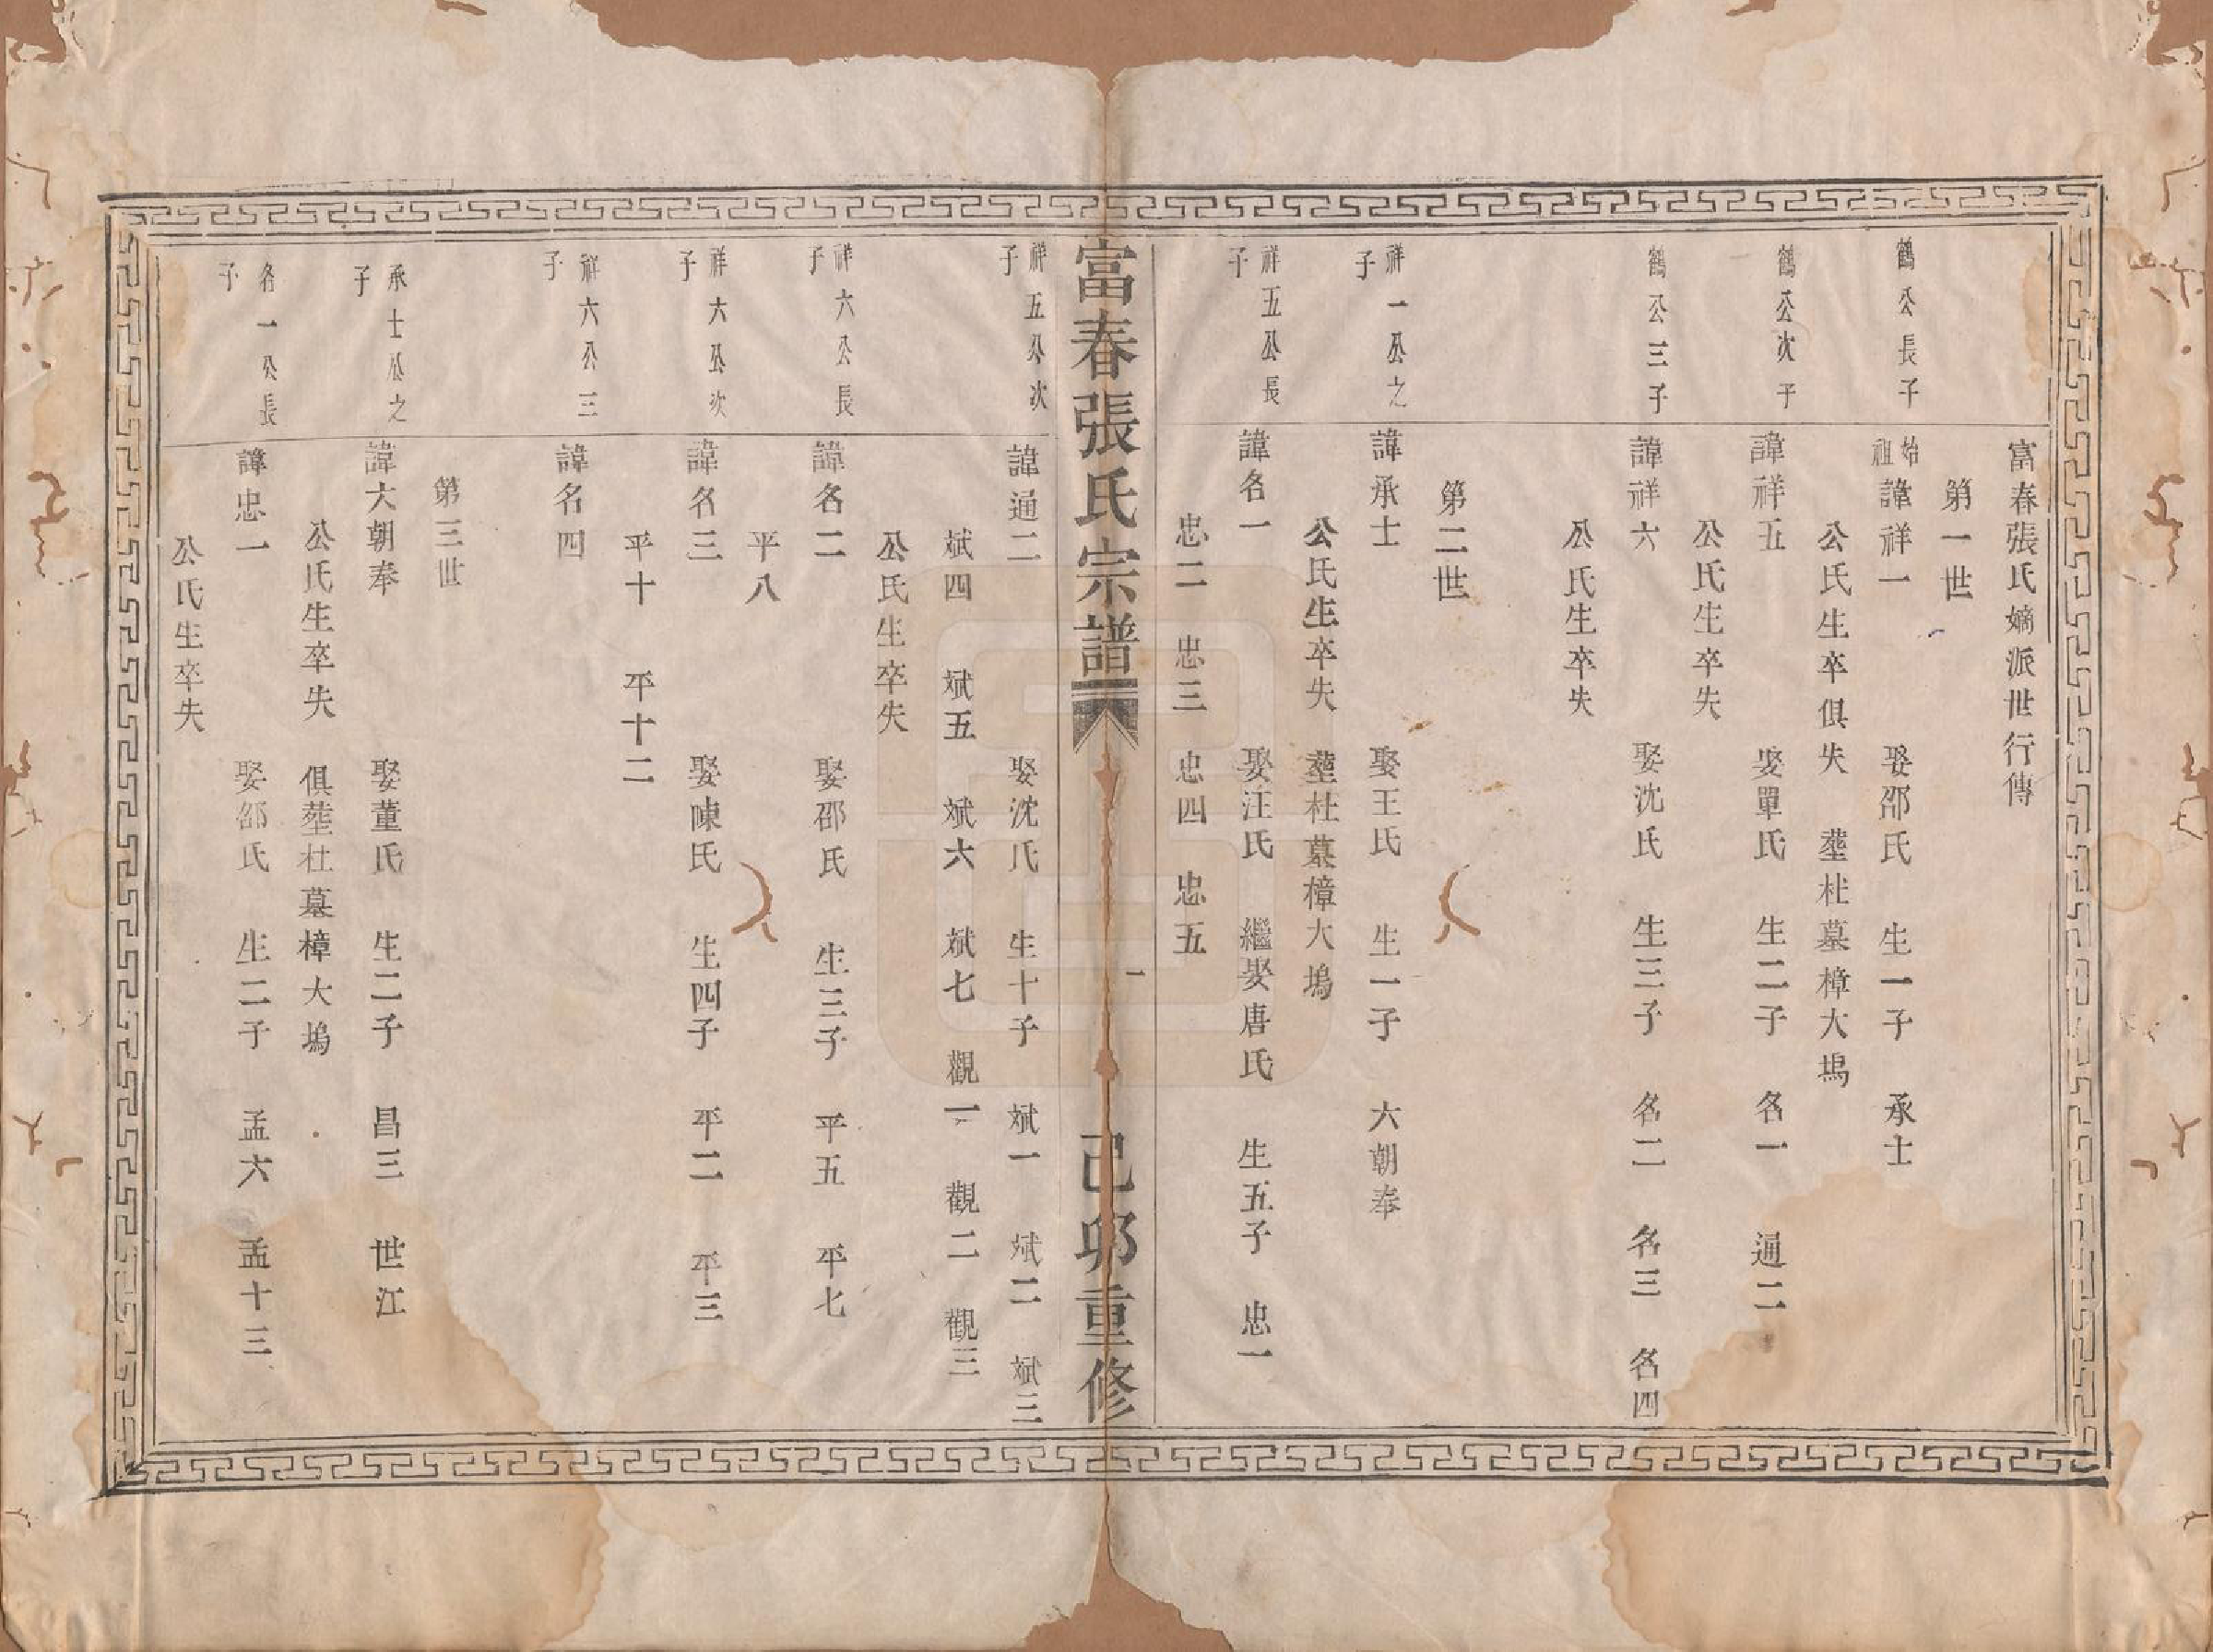 富春張氏嫡派世行傳
第一世
鶴公長子
始祖諱祥一 娶邵氏 生一子 承士
公氏生卒俱失 塟杜墓樟大塢
鶴公次子
諱祥五 娶單氏 生二子 名一 通二
公氏生卒失
鶴公三子
諱祥六 娶沈氏 生三子 名二 名三 名四
公氏生卒失
第二世
祥一公之子
諱承士 娶王氏 生一子 六朝奉
公氏生卒失 塟杜墓樟大塢
祥五公長子
諱名一 娶汪氏 繼娶唐氏 生五子 忠一
忠二 忠三 忠四 忠五
富春張氏宗譜 一 己夘重修
祥五公次子
諱通二 娶沈氏 生十子 斌一 斌二 斌三
斌四 斌五 斌六 斌七 觀一 觀二 觀三
公氏生卒失
祥六公長子
諱名二 娶邵氏 生三子 平五 平七
平八
祥六公次子
諱名三 娶陳氏 生四子 平二 平三
平十 平十二
祥六公三子
諱名四
第三世
承士公之子
諱大朝奉 娶董氏 生二子 昌三 世江
公氏生卒失 俱塟杜墓樟大塢
名一公長子
諱忠一 娶邵氏 生二子 孟六 孟十三
公氏生卒失